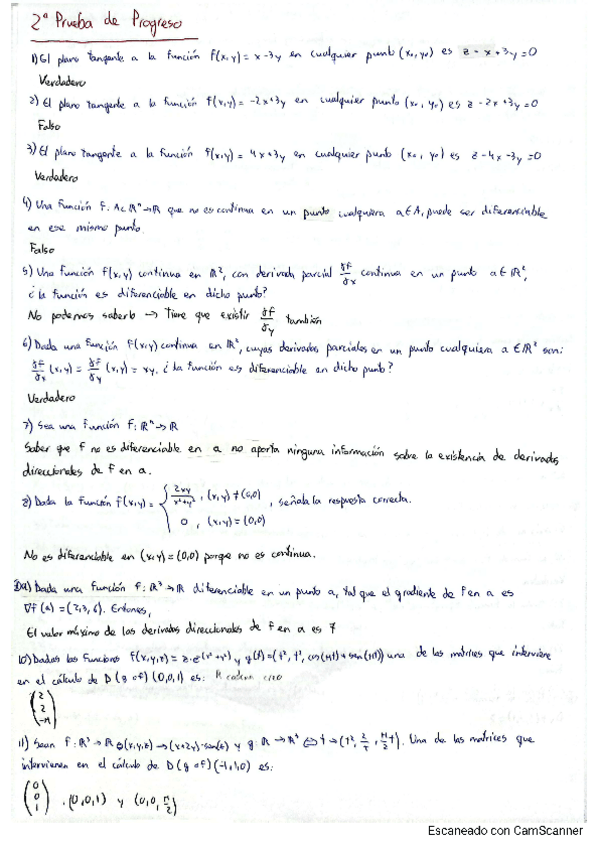 2ª Prueba de Progreso
1) El plano tangente a la función f(x,y) = x-3y en cualquier punto (x₀, y₀) es z - x + 3y = 0
Verdadero
2) El plano tangente a la función f(x,y) = -2x+3y en cualquier punto (x₀, y₀) es z - 2x + 3y = 0
Falso
3) El plano tangente a la función f(x,y) = 4x+3y en cualquier punto (x₀, y₀) es z - 4x - 3y = 0
Verdadero
4) Una función f: A⊂ℝⁿ→ℝ que no es continua en un punto cualquiera a∈A, puede ser diferenciable
en ese mismo punto.
Falso
5) Una función f(x,y) continua en ℝ², con derivada parcial ∂f/∂x continua en un punto a∈ℝ²,
¿la función es diferenciable en dicho punto?
No podemos saberlo → Tiene que existir ∂f/∂y también
6) Dada una función f(x,y) continua en ℝ², cuyas derivadas parciales en un punto cualquiera a∈ℝ² son:
∂f/∂x (x,y) = ∂f/∂y (x,y) = xy. ¿La función es diferenciable en dicho punto?
Verdadero
7) Sea una función f: ℝⁿ→ℝ
Saber que f no es diferenciable en a no aporta ninguna información sobre la existencia de derivadas
direccionales de f en a.
8) Dada la función f(x,y) = { 2xy/x²+y² , (x,y) ≠ (0,0) , señala la respuesta correcta.
0 , (x,y) = (0,0)
No es diferenciable en (x,y) = (0,0) porque no es continua.
Dada una función f: ℝ³→ℝ diferenciable en un punto a, tal que el gradiente de f en a es
∇f(a) = (2,3,6). Entonces,
El valor máximo de las derivadas direccionales de f en a es 7
10) Dadas las funciones f(x,y,z) = z·e^(x²+y²) y g(t) = (t², t², cos(πt) + sen(πt)) una de las matrices que interviene
en el cálculo de D(g∘f)(0,0,1) es:
(2
2
-π)
11) Sean f: ℝ³→ℝ (x,y,z) → (x+2y)·sen(z) y g: ℝ→ℝ³ t→(t², 2/t, π/2 t). Una de las matrices que
intervienen en el cálculo de D(g∘f)(-1,1,0) es:
(0
0
1) . (0,0,1) y (0,0,π/2)
Escaneado con CamScanner